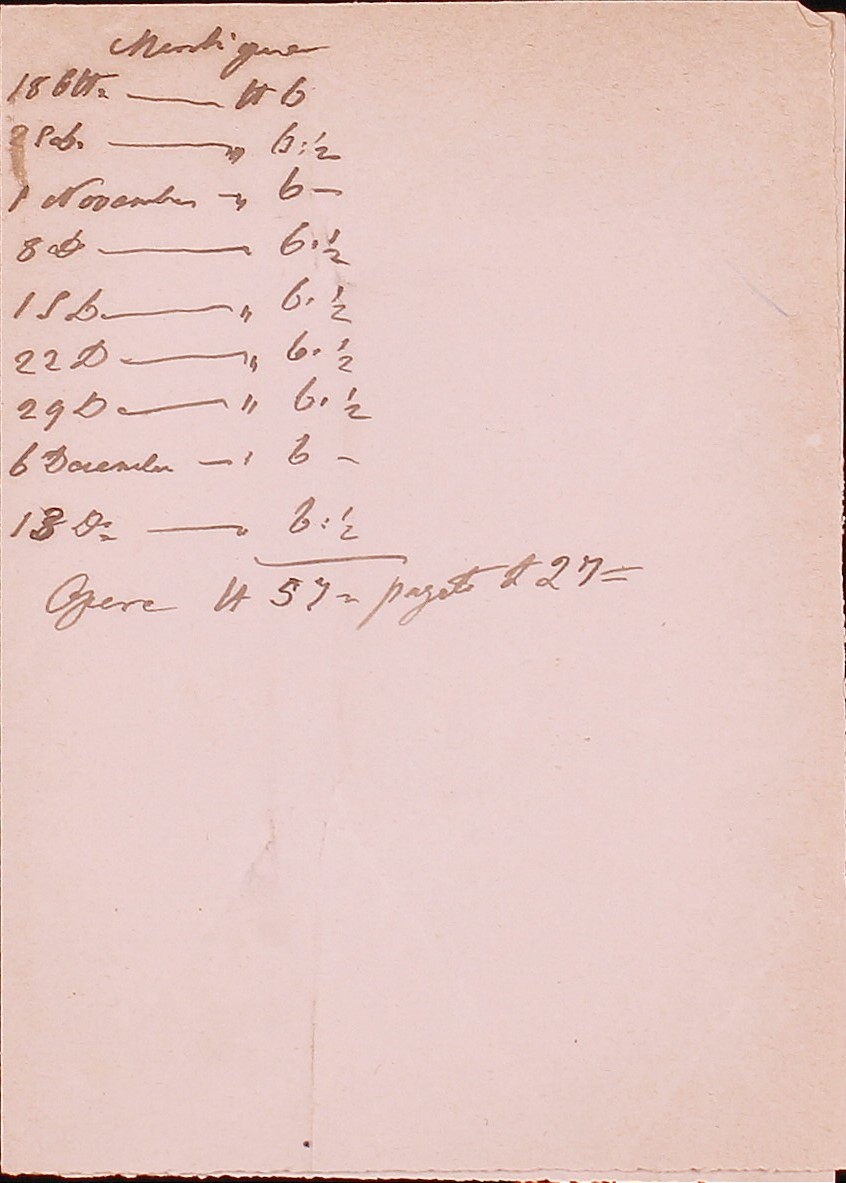 18 8bre — N 6
25 D. — " 6:½
1 Novembre — " 6 —
8 D — " 6.½
15 D. — " 6.½
22 D — " 6.½
29 D — " 6.½
6 Dicembre — " 6 –
13 D: — " 6:½
Opere N 57= pagato N 27=